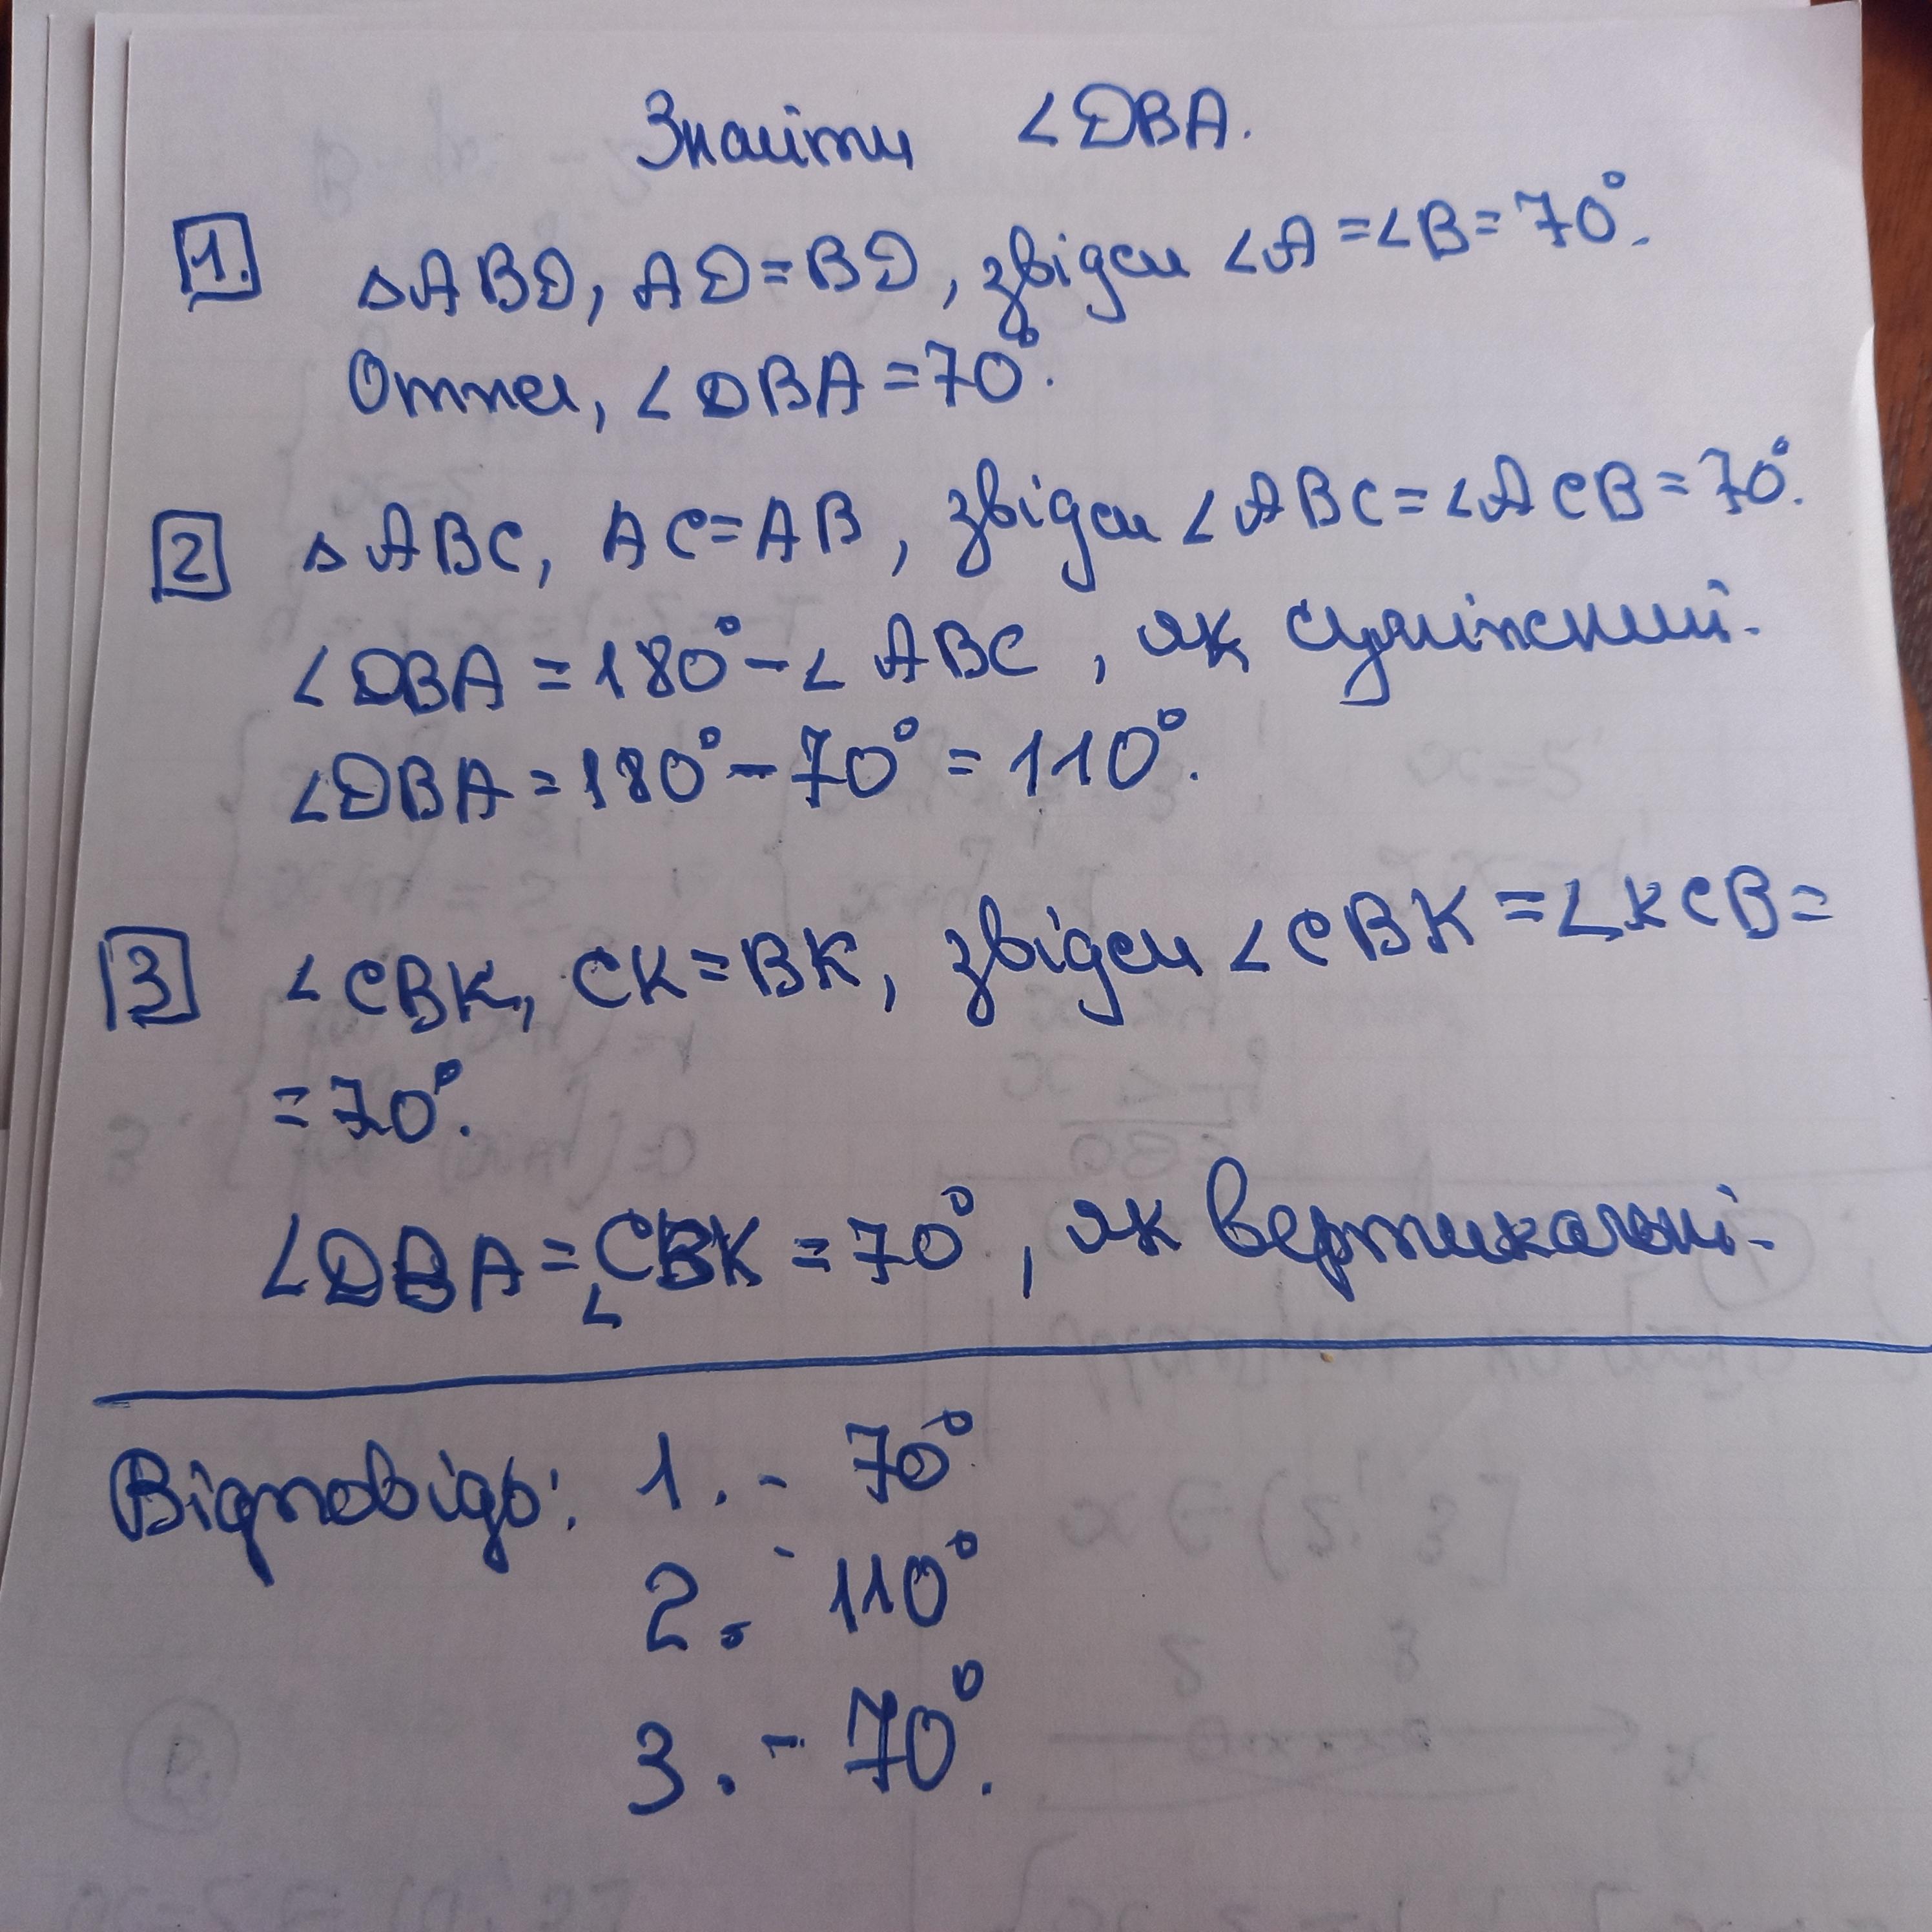 Знайти ∠DBA.
1. △ABD, AD=BD, звідси ∠A=∠B=70°.
Отже, ∠DBA=70°.
2 △ABC, AC=AB, звідси ∠ABC=∠ACB=70°.
∠DBA=180°-∠ABC, як суміжний.
∠DBA=180°-70°=110°.
3 ∠CBK, CK=BK, звідси ∠CBK=∠KCB=
=70°.
∠DBA=∠CBK=70°, як вертикальні.
Відповідь: 1.- 70°
2.- 110°
3.- 70°.